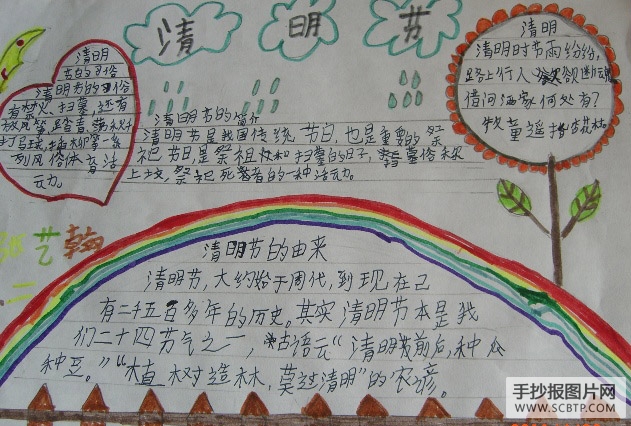 清明节
清明
节的习俗
清明节的习俗
有禁火、扫墓,还有
放风筝、踏青、荡秋千
打马球、插柳等一系
列风俗体育活
动。
清明节的简介
清明节是我国传统节日,也是重要的祭
祀节日,是祭祖和扫墓的日子,扫墓俗称
上坟,祭祀死者的一种活动。
清明
清明时节雨纷纷,
路上行人欲断魂
借问酒家何处有?
牧童遥指杏花村
艺翰
二
清明节的由来
清明节,大约始于周代,到现在已
有二千五百多年的历史。其实清明节本是我
们二十四节气之一,古语云“清明前后,种瓜
种豆。”“植树造林,莫过清明”的农谚。
手抄报图片网
WWW.SCBTP.COM